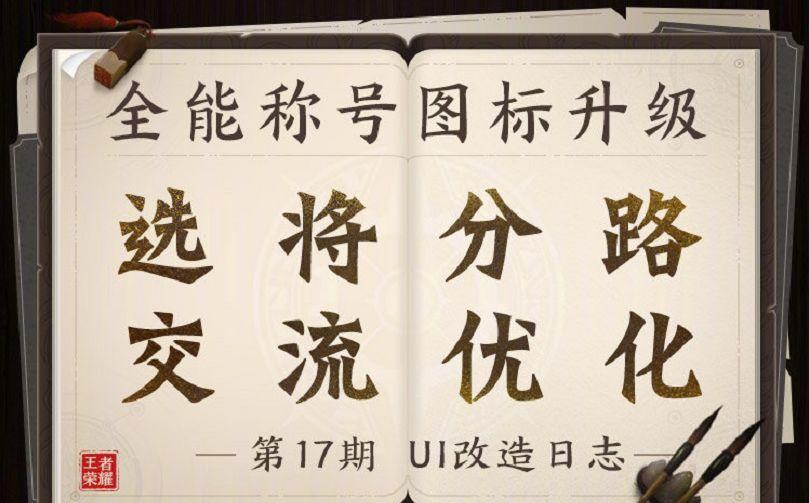 全能称号图标升级
选将分路
交流优化
第17期 UI改造日志
王者
荣耀